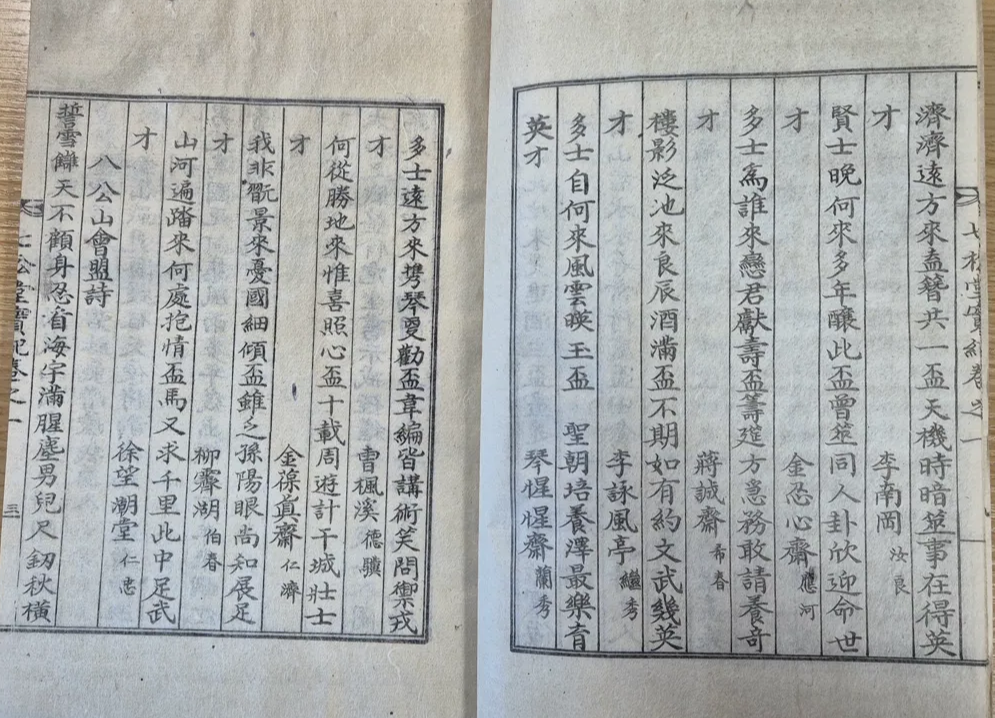 七松堂實紀卷之一
濟濟遠方來盍簪共一盃天機時暗筮事在得英
才 李南岡 汝良
賢士晚何來多年釀此盃曾筮同人卦欣迎命世
才 金忍心齋 應河
多士爲誰來戀君獻壽盃籌筵方急務敢請養奇
才 蔣誠齋 希春
樓影泛池來良辰酒滿盃不期如有約文武幾英
才 李詠風亭 繼秀
多士自何來風雲暎玉盃 聖朝培養澤最樂育
英才 琴惺惺齋 蘭秀
多士遠方來携琴更勸盃韋編皆講術笑問禦戎
才 曺楓溪 德驥
何從勝地來惟喜照心盃十載周遊計干城壯士
才 金葆眞齋 仁濟
我非翫景來憂國細傾盃雖乏孫陽眼尙知展足
才 柳霽湖 伯春
山河遍踏來何處抱情盃馬又求千里此中足武
才 徐望潮堂 仁忠
八公山會盟詩
誓雪讎天不顧身忍看海宇滿腥塵男兒尺釰秋橫
七松堂實紀卷之一 三